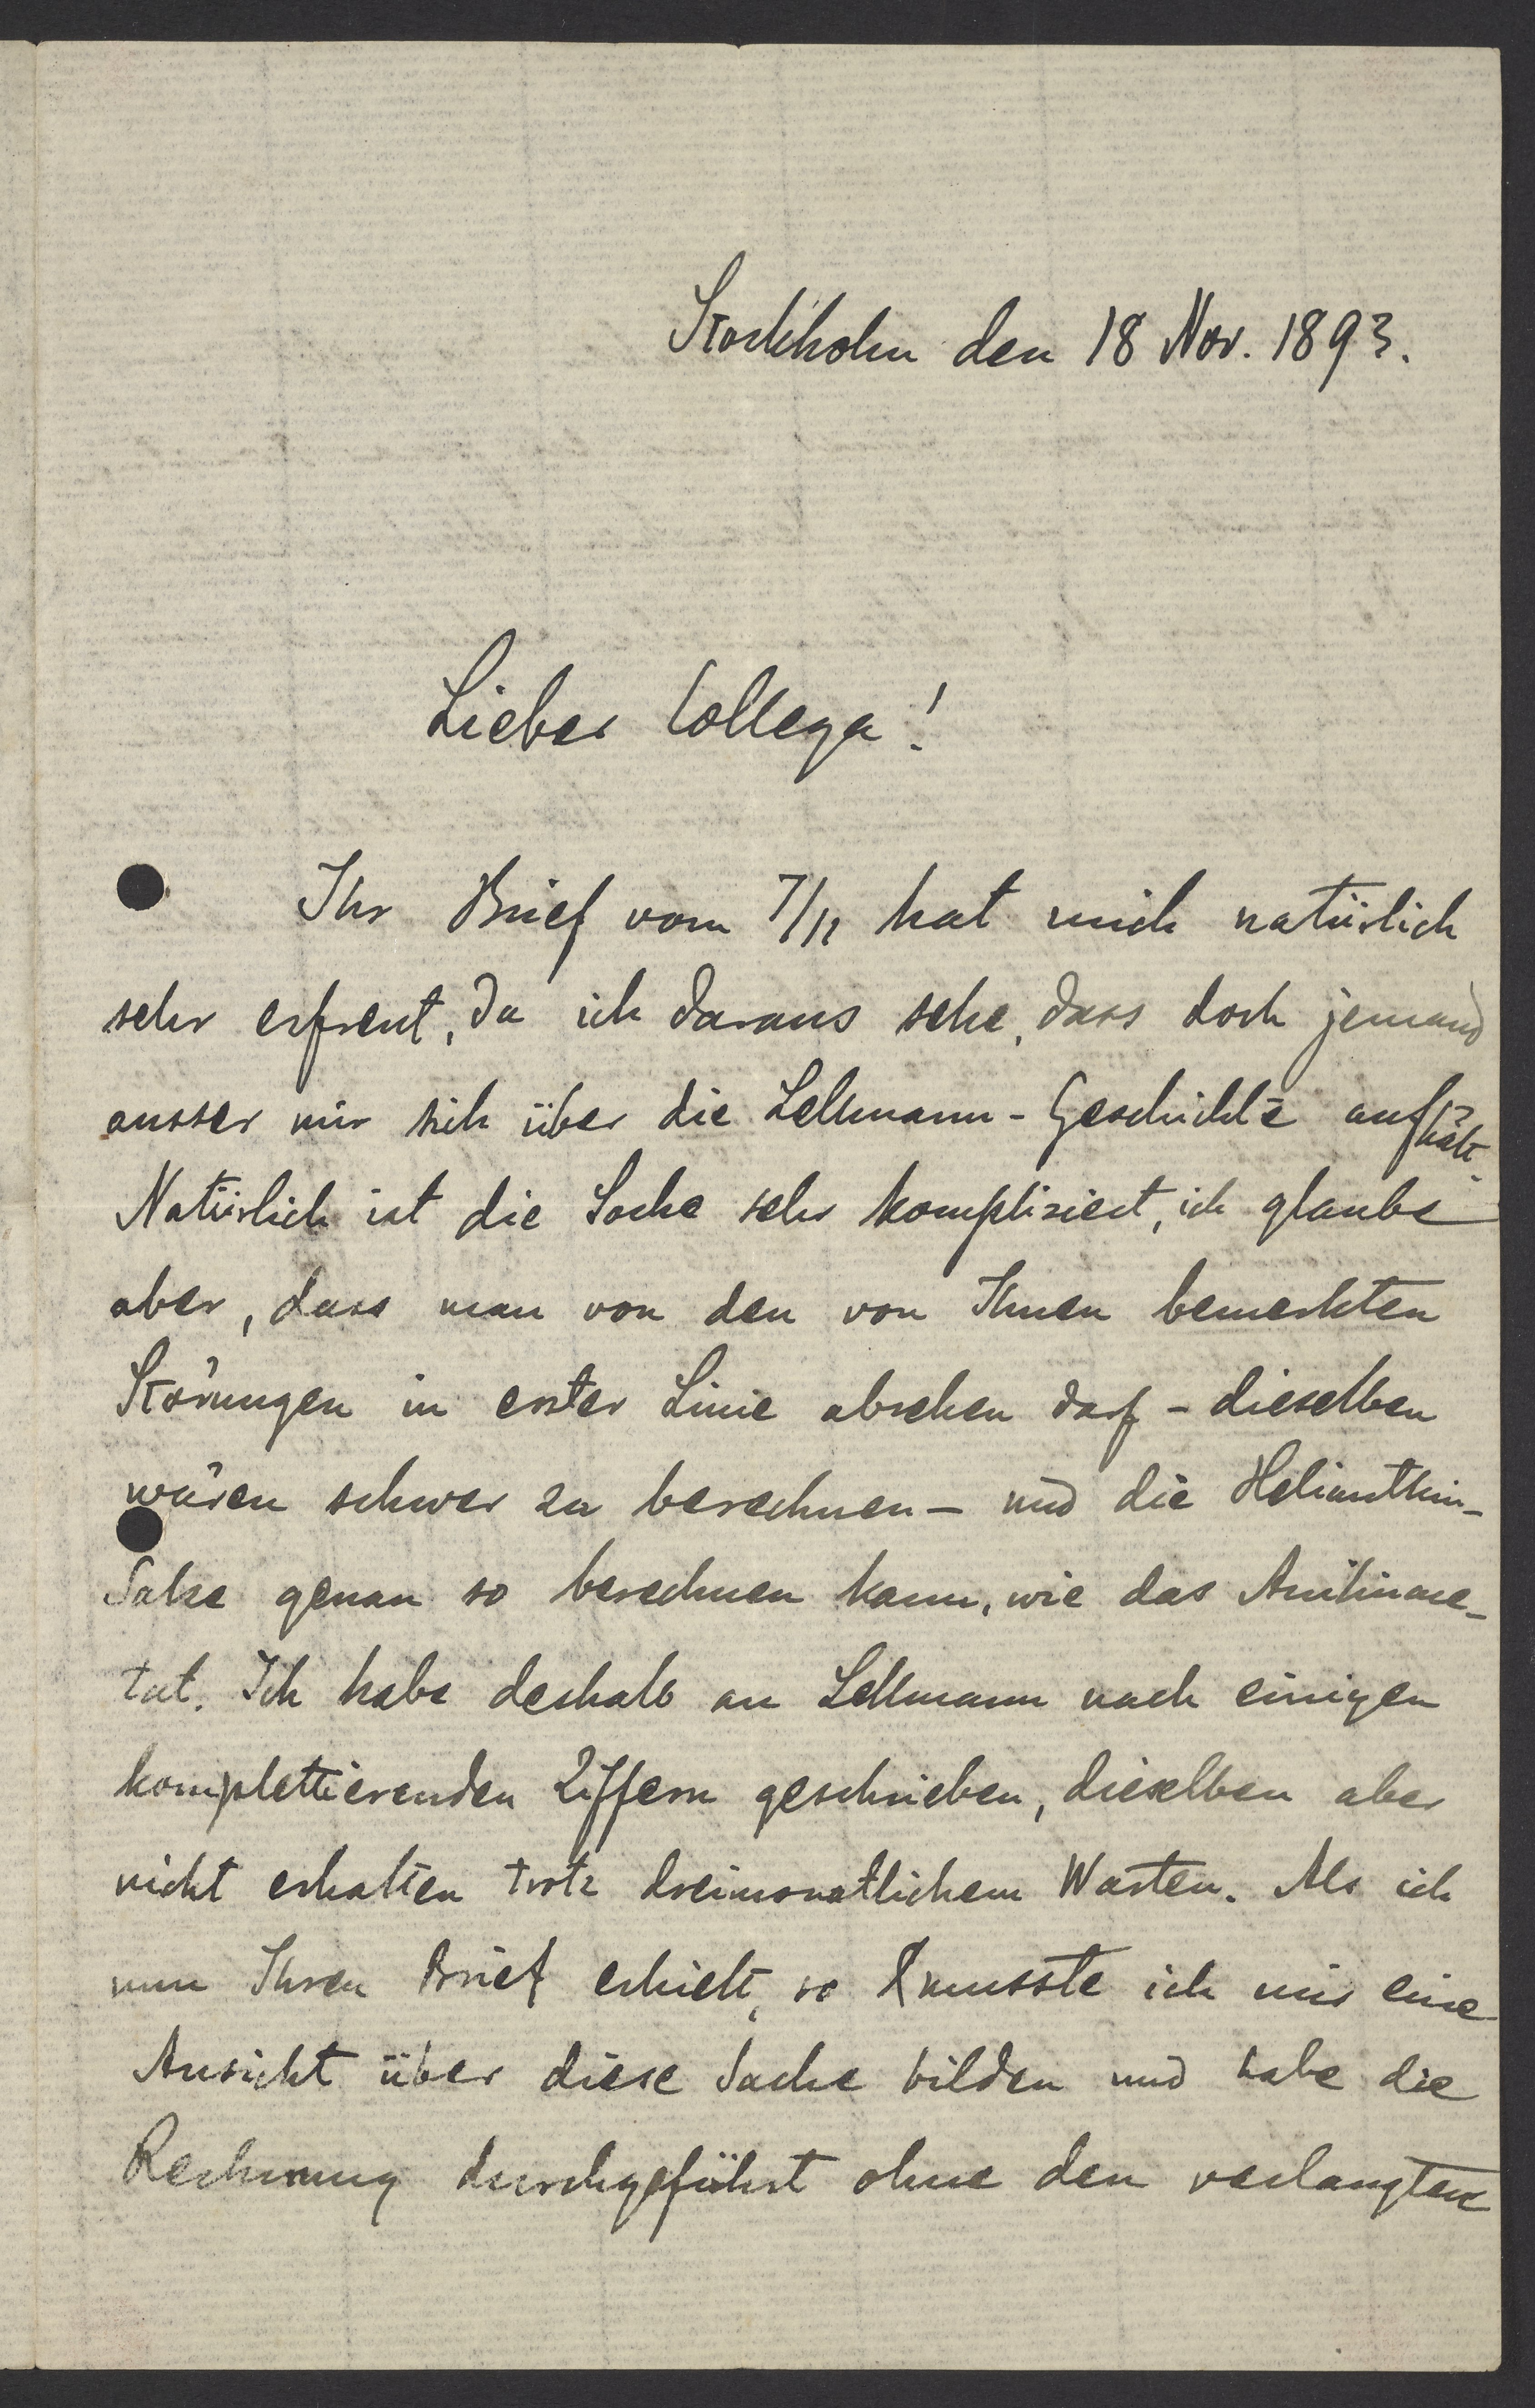 Stockholm den 18 Nov. 1893.
Lieber Collega!
Ihr Brief vom 7/11 hat mich natürlich
sehr erfreut, da ich daraus sehe, dass doch jemand
ausser mir sich über die Lellmann-Geschichte aufhält.
Natürlich ist die Sache sehr kompliziert, ich glaube
aber, dass man von den von Ihnen bemerkten
Störungen in erster Linie absehen darf - dieselben
wären schwer zu berechnen - und die Helianthin-
Salze genau so berechnen kann, wie das Anilinace-
tat. Ich habe deshalb an Lellmann nach einigen
komplettierenden Ziffern geschrieben, dieselben aber
nicht erhalten trotz dreimonatlichem Warten. Als ich
nun Ihren Brief erhielt, so musste ich mir eine
Ansicht über diese Sache bilden und habe die
Rechnung durchgeführt ohne den verlangten